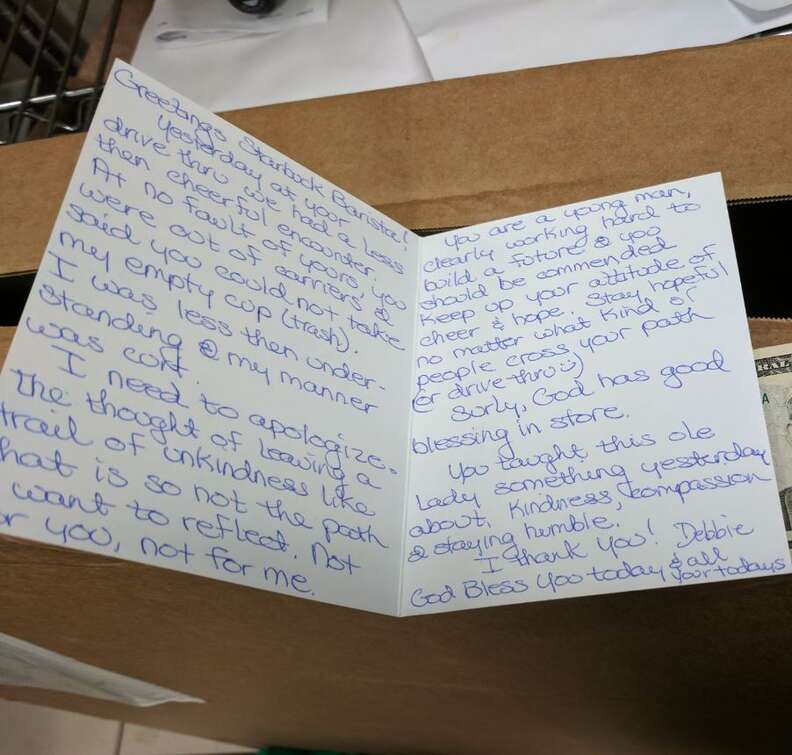 Greetings Starbuck Barista!
Yesterday at your
drive thru we had a less
then cheerful encounter.
At no fault of yours, you
were out of carriers &
said you could not take
my empty cup (trash).
I was less then under-
standing & my manner
was cort.
I need to apologize.
The thought of leaving a
trail of unkindness like
that is so not the path
I want to reflect. Not
for you, not for me.
You are a young man,
clearly working hard to
build a future & you
should be commended
keep up your attitude of
cheer & hope. Stay hopeful
no matter what kind of
people cross your path
(or drive thru :))
Surly, God has good
blessing in store.
You taught this ole
Lady something yesterday
about, kindness, compassion
& staying humble.
I thank You! Debbie
God Bless You today & all
your todays